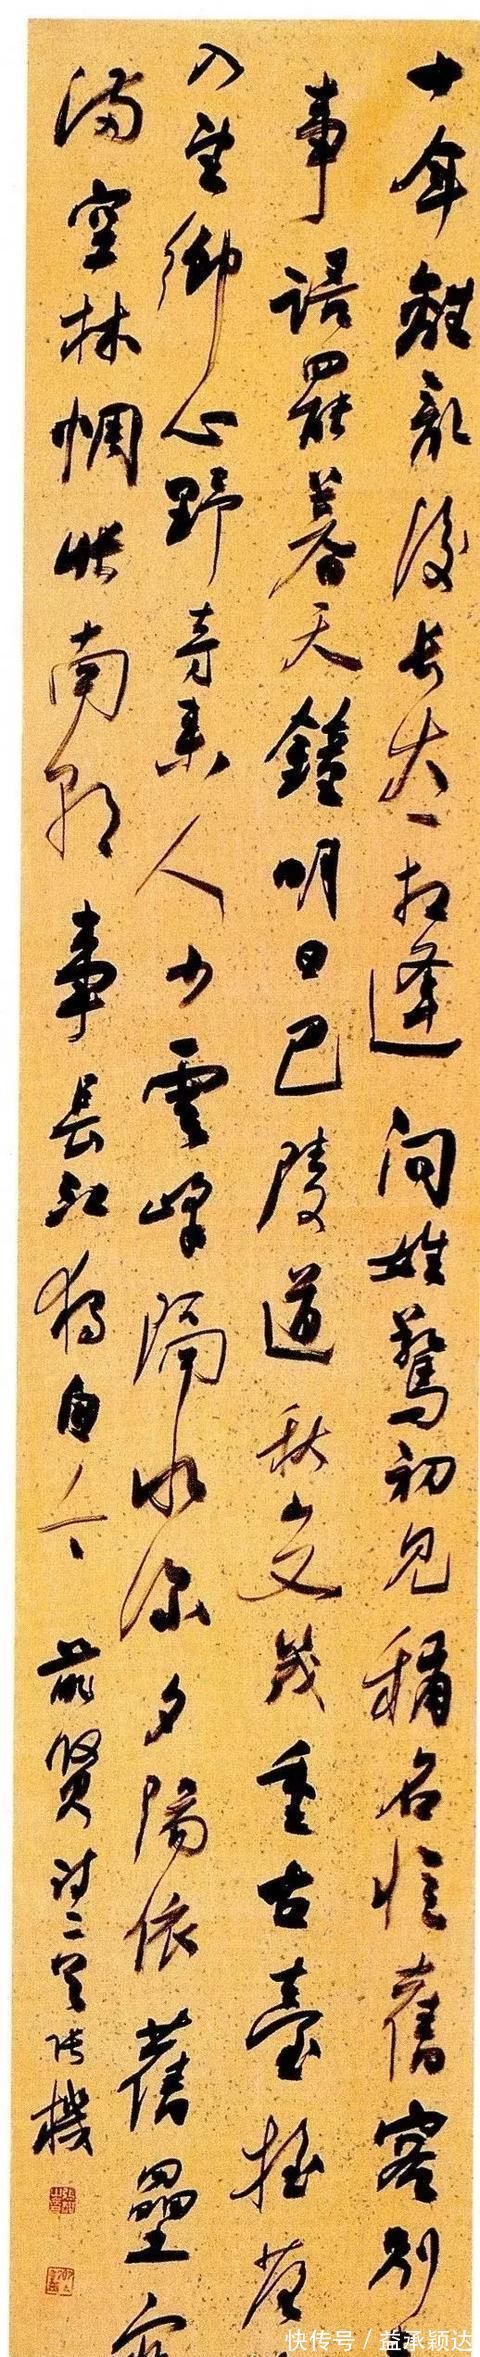 十年離亂後長大一相逢問姓驚初見稱名憶舊容別
事語罷暮天鐘明日巴陵道秋山又幾重古臺摇落
入望鄉心野寺来人少雲峰隔水深夕陽依舊壘寒
滿空林惆悵南朝事長江獨自今
前賢詩二首 機
快传号 / 益承颖达